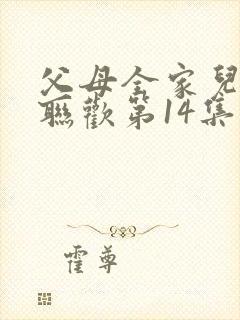 父母全家兒
聯歡第14集
霍尊